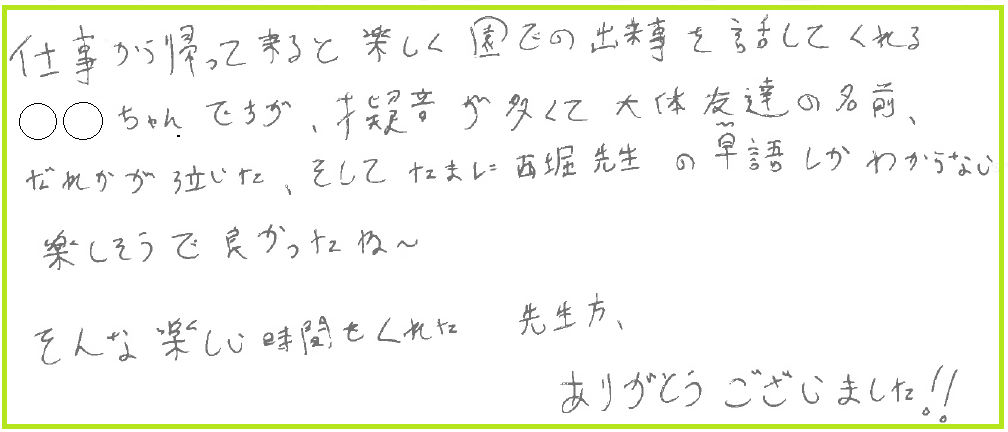 仕事から帰って来ると楽しく園での出来事を話してくれる
○○ちゃんですが、擬音が多くて大体友達の名前、
だれかが泣いた、そしてたまに西堀先生の単語しかわからない
楽しそうで良かったね〜
そんな楽しい時間をくれた 先生方、
ありがとうございました!!